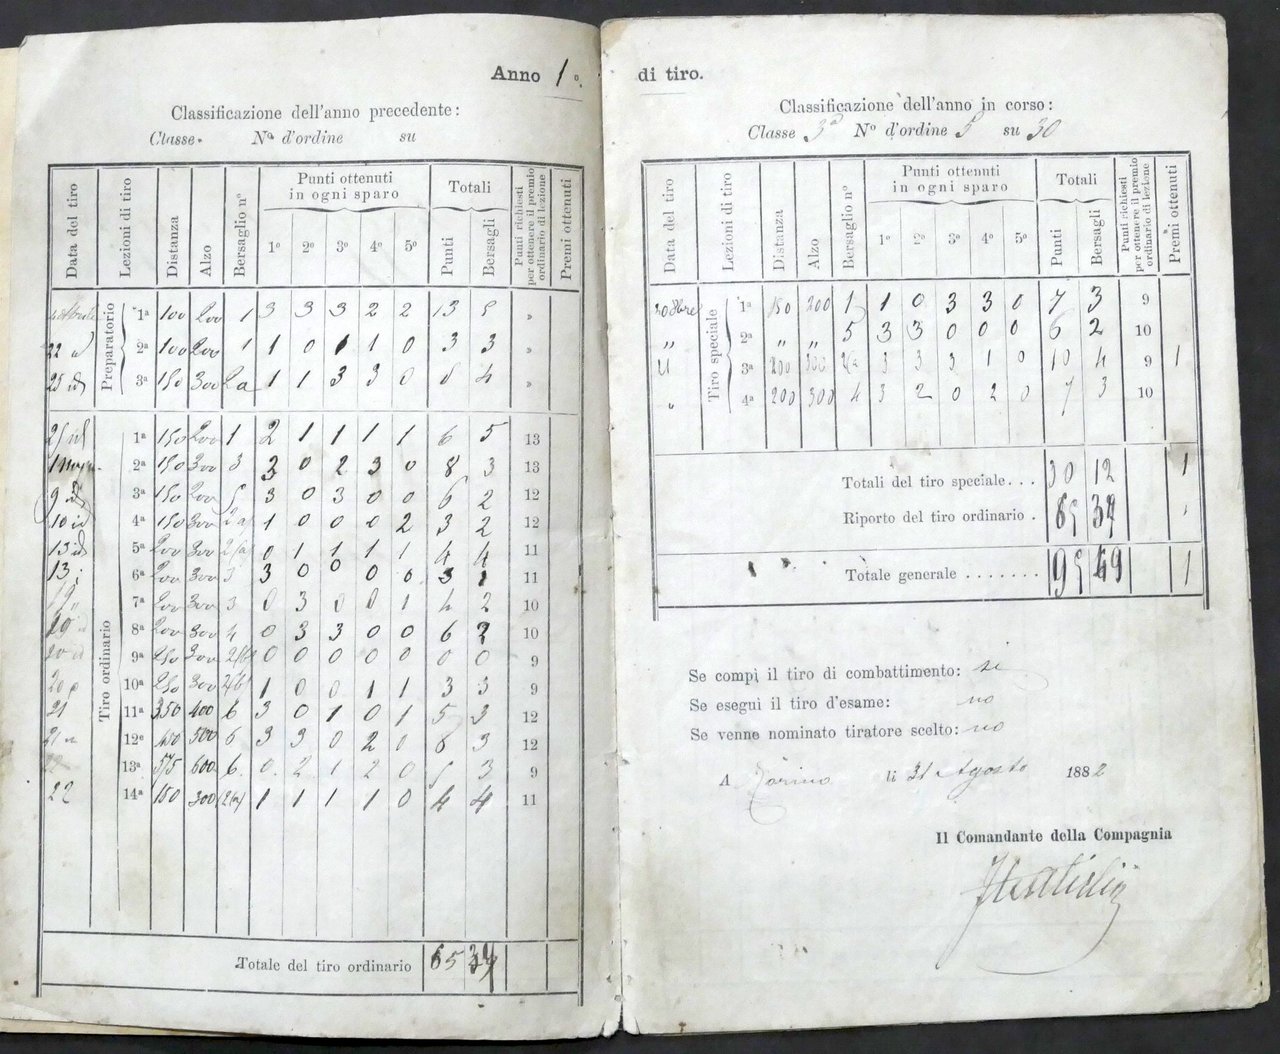 Anno 1º.
Classificazione dell'anno precedente:
Classe. Nº d'ordine su
Data del tiro Lezioni di tiro Distanza Alzo Bersaglio nº Punti ottenuti in ogni sparo Totali Punti richiesti per ottenere il premio ordinario di lezione Premi ottenuti
1º 2º 3º 4º 5º Punti Bersagli
Preparatorio
1ª 100 200 1 3 3 3 2 2 13 5 »
22 1ª 100 200 1 1 0 1 1 0 3 3 »
25 id 3ª 150 300 2a 1 1 3 3 0 8 4 »
Tiro ordinario
25 id 1ª 150 200 1 2 1 1 1 1 6 5 13
1 2ª 150 300 3 3 0 2 3 0 8 3 13
9 id 3ª 150 200 5 3 0 3 0 0 6 2 12
10 id 4ª 150 300 2a 1 0 0 0 2 3 2 12
13 id 5ª 200 300 0 1 1 1 1 4 4 11
13 6ª 200 300 3 3 0 0 0 0 3 1 11
19 7ª 200 300 3 0 3 0 0 1 4 2 10
8ª 200 300 4 0 3 3 0 0 6 2 10
9ª 250 300 0 0 0 0 0 0 0 9
20 10ª 250 300 1 0 0 1 1 3 3 9
21 11ª 350 400 6 3 0 1 0 1 5 3 12
21 12ª 450 500 6 3 3 0 2 0 8 3 12
22 13ª 575 600 6 0 2 1 2 0 5 3 9
22 14ª 150 300 (2a) 1 1 1 1 0 4 4 11
Totale del tiro ordinario 65
di tiro.
Classificazione dell'anno in corso:
Classe 3ª Nº d'ordine 5 su 30
Data del tiro Lezioni di tiro Distanza Alzo Bersaglio nº Punti ottenuti in ogni sparo Totali Punti richiesti per ottenere il premio ordinario di lezione Premi ottenuti
1º 2º 3º 4º 5º Punti Bersagli
Tiro speciale
1ª 150 200 1 1 0 3 3 0 7 3 9
„ 2ª „ „ 5 3 3 0 0 0 6 2 10
3ª 200 300 3 3 3 1 0 10 4 9 1
„ 4ª 200 300 4 3 2 0 2 0 7 3 10
Totali del tiro speciale... 30 12 1
Riporto del tiro ordinario . 65
Totale generale ....... 95 49 1
Se compì il tiro di combattimento: si
Se eseguì il tiro d'esame: no
Se venne nominato tiratore scelto: no
A Torino li 31 Agosto 1882
Il Comandante della Compagnia